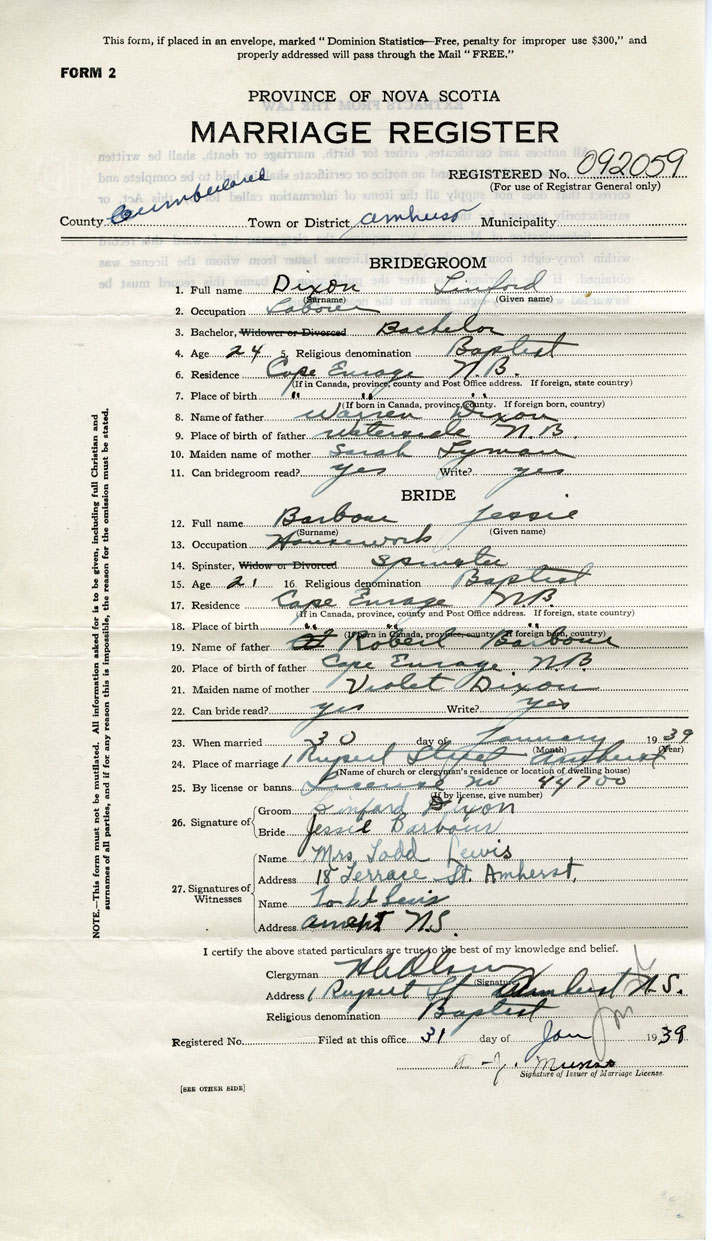 This form, if placed in an envelope, marked " Dominion Statistics—Free, penalty for improper use $300," and
properly addressed will pass through the Mail " FREE."
FORM 2
PROVINCE OF NOVA SCOTIA
MARRIAGE REGISTER
REGISTERED No. 092059
(For use of Registrar General only)
County Cumberland Town or District Amherst Municipality
BRIDEGROOM
1. Full name Dixon Linford
(Surname) (Given name)
2. Occupation Laborer
3. Bachelor, Widower or Divorced Bachelor
4. Age 24 5. Religious denomination Baptist
6. Residence Cape Enrage N.B.
(If in Canada, province, county and Post Office address. If foreign, state country)
7. Place of birth " " "
(If born in Canada, province, county. If foreign born, country)
8. Name of father Warren Dixon
9. Place of birth of father Waterside N.B.
10. Maiden name of mother Sarah Lyman
11. Can bridegroom read? yes Write? yes
BRIDE
12. Full name Barbour Jessie
(Surname) (Given name)
13. Occupation Housework
14. Spinster, Widow or Divorced Spinster
15. Age 21 16. Religious denomination Baptist
17. Residence Cape Enrage N.B.
(If in Canada, province, county and Post Office address. If foreign, state country)
18. Place of birth " " "
(If born in Canada, province, county. If foreign born, country)
19. Name of father Robert Barbour
20. Place of birth of father Cape Enrage N.B.
21. Maiden name of mother Violet Dixon
22. Can bride read? yes Write? yes
23. When married 30 day of January 1939
(Month) (Year)
24. Place of marriage 1 Rupert Street Amherst
(Name of church or clergyman's residence or location of dwelling house)
25. By license or banns License No 44700
(If by license, give number)
26. Signature of
Groom Linford Dixon
Bride Jessie Barbour
27. Signatures of Witnesses
Name Mrs Todd Lewis
Address 18 Terrace St. Amherst,
Name Todd Lewis
Address N.S.
I certify the above stated particulars are true to the best of my knowledge and belief.
Clergyman
(Signature)
Address 1 Rupert St Amherst N.S.
Religious denomination Baptist
Registered No. Filed at this office 31 day of Jan 1939
Munro
Signature of Issuer of Marriage License.
[SEE OTHER SIDE]
NOTE.—This form must not be mutilated. All information asked for is to be given, including full Christian and
surnames of all parties, and if for any reason this is impossible, the reason for the omission must be stated.